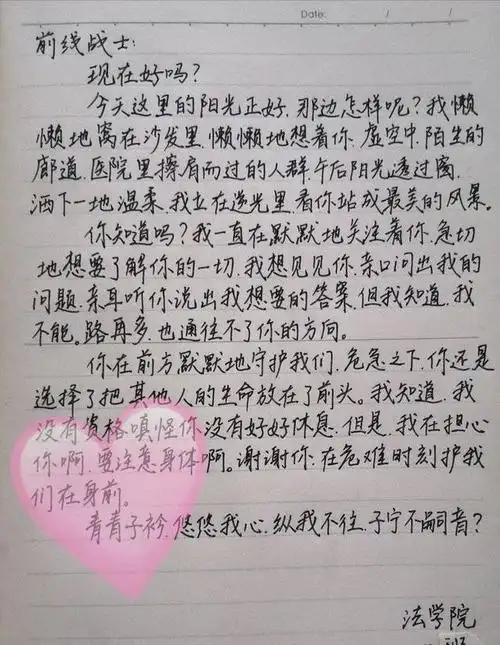 Date: / /
前线战士:
现在好吗?
今天这里的阳光正好,那边怎样呢?我懒
懒地窝在沙发里,懒懒地想着你,虚空中,陌生的
廊道,医院里擦肩而过的人群,午后阳光透过窗,
洒下一地温柔,我立在逆光里,看你站成最美的风景。
你知道吗?我一直在默默地关注着你,急切
地想要了解你的一切,我想见见你,亲口问出我的
问题,亲耳听你说出我想要的答案,但我知道,我
不能。路再多,也通往不了你的方向。
你在前方默默地守护我们,危急之下,你还是
选择了把其他人的生命放在了前头。我知道,我
没有资格嗔怪你没有好好休息,但是,我在担心
你啊,要注意身体啊。谢谢你,在危难时刻护我
们在身前。
青青子衿,悠悠我心,纵我不往,子宁不嗣音?
法学院